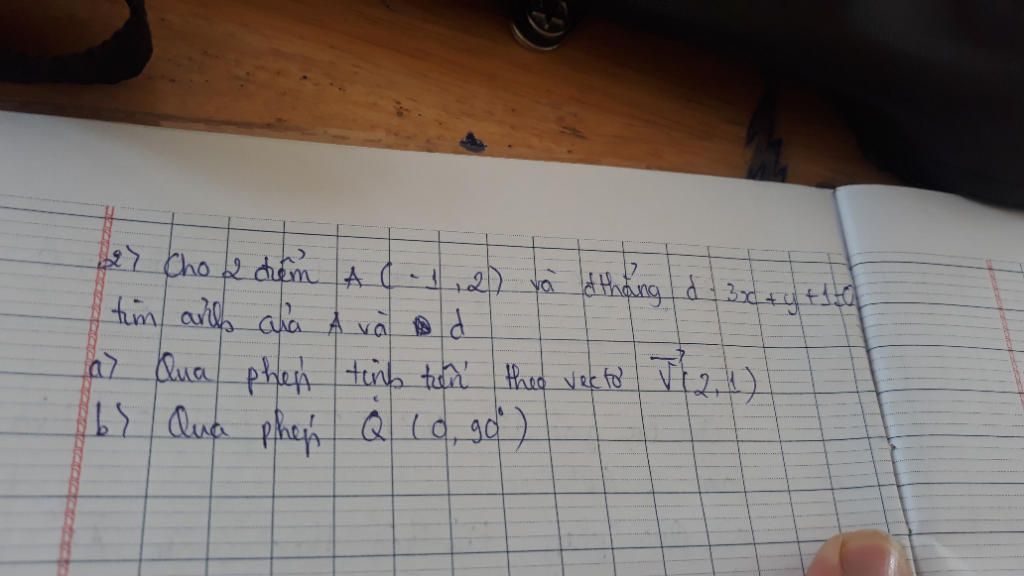 2> Cho 2 điểm A ( -1, 2) và đthẳng d : 3x + y + 1 = 0
tìm ảnh của A và d
a> Qua phép tịnh tiến theo vectơ V (2, 1)
b> Qua phép Q (0, 90°)